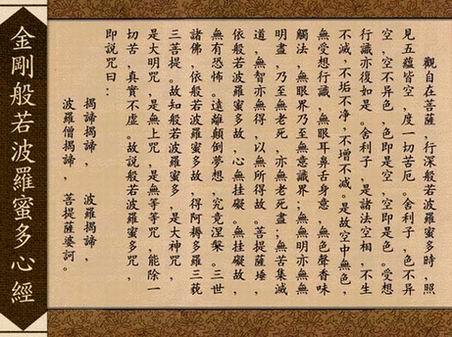 觀自在菩薩，行深般若波羅蜜多時，照
見五蘊皆空，度一切苦厄。舍利子，色不異
空，空不異色，色即是空，空即是色。受想
行識亦復如是。舍利子，是諸法空相，不生
不滅，不垢不净，不增不減。是故空中無色，
無受想行識，無眼耳鼻舌身意，無色聲香味
觸法，無眼界乃至無意識界，無無明亦無無
明盡，乃至無老死，亦無老死盡；無苦集滅
道，無智亦無得，以無所得故。菩提薩埵，
依般若波羅蜜多故，心無挂礙。無挂礙故，
無有恐怖。遠離顛倒夢想，究竟涅槃。三世
諸佛，依般若波羅蜜多故，得阿耨多羅三藐
三菩提。故知般若波羅蜜多，是大神咒，
是大明咒，是無上咒，是無等等咒，能除一
切苦，真實不虛。故說般若波羅蜜多咒，
即說咒曰：
揭諦揭諦，　波羅揭諦，
波羅僧揭諦，　菩提薩婆訶。
金剛般若波羅蜜多心經